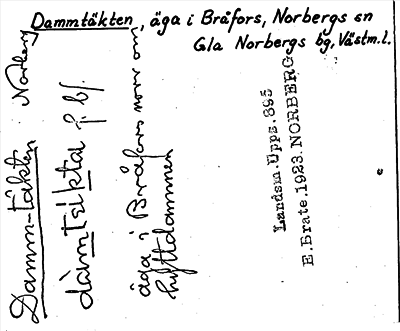 Dammtäkten, äga i Bråfors, Norbergs sn
Gla Norbergs bg, Västm.l.
Damm-täkten Norberg
dàmtèiktaı f. bf.
äga i Bråfors norr om
hyttdammen
Landsm. Upps. 395
E. Brate. 1923. NORBERG